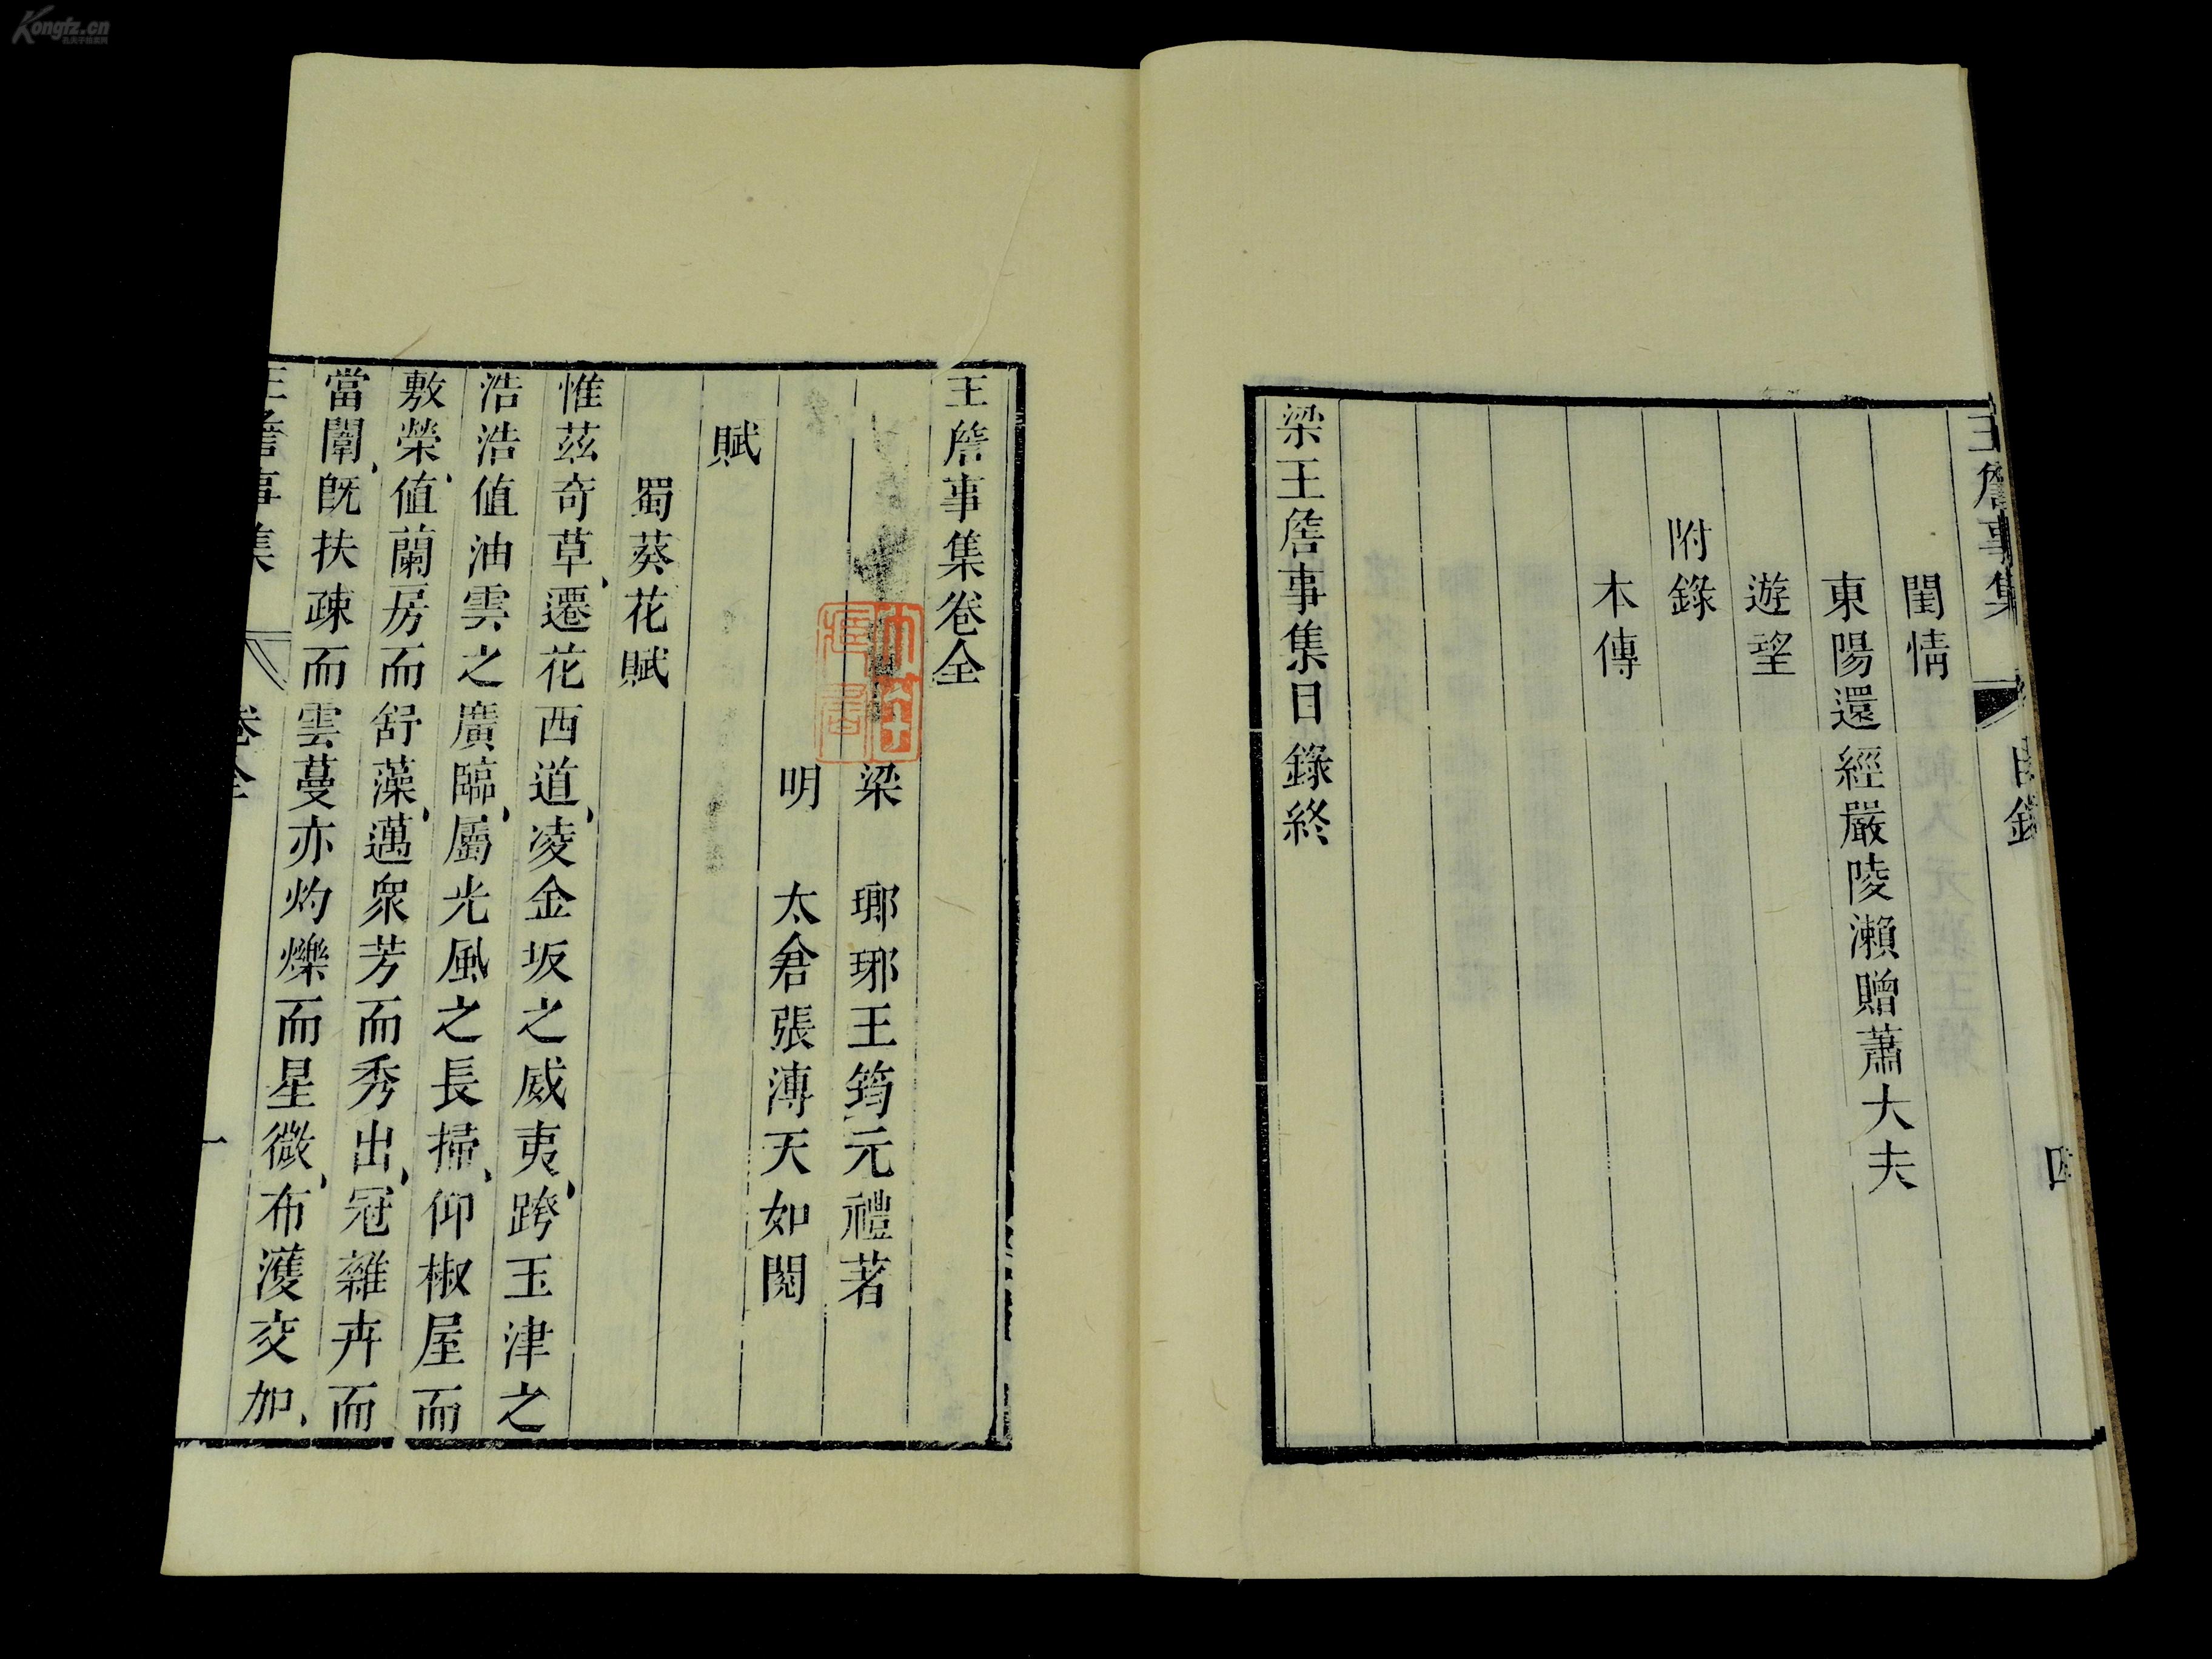 Kongfz.cn
王詹事集 目錄 四
閨情
東陽還經嚴陵瀨贈蕭大夫
遊望
附錄
本傳
梁王詹事集目錄終
王詹事集卷全
梁 瑯琊王筠元禮著
明 太倉張溥天如閱
賦
蜀葵花賦
惟茲奇草、遷花西道、凌金坂之威夷、跨玉津之
浩浩值油雲之廣臨、屬光風之長掃、仰椒屋而
敷榮、値蘭房而舒藻、邁衆芳而秀出、冠雜卉而
當闈、旣扶疎而雲蔓亦灼爍而星微、布濩交加、
王詹事集 卷全 一